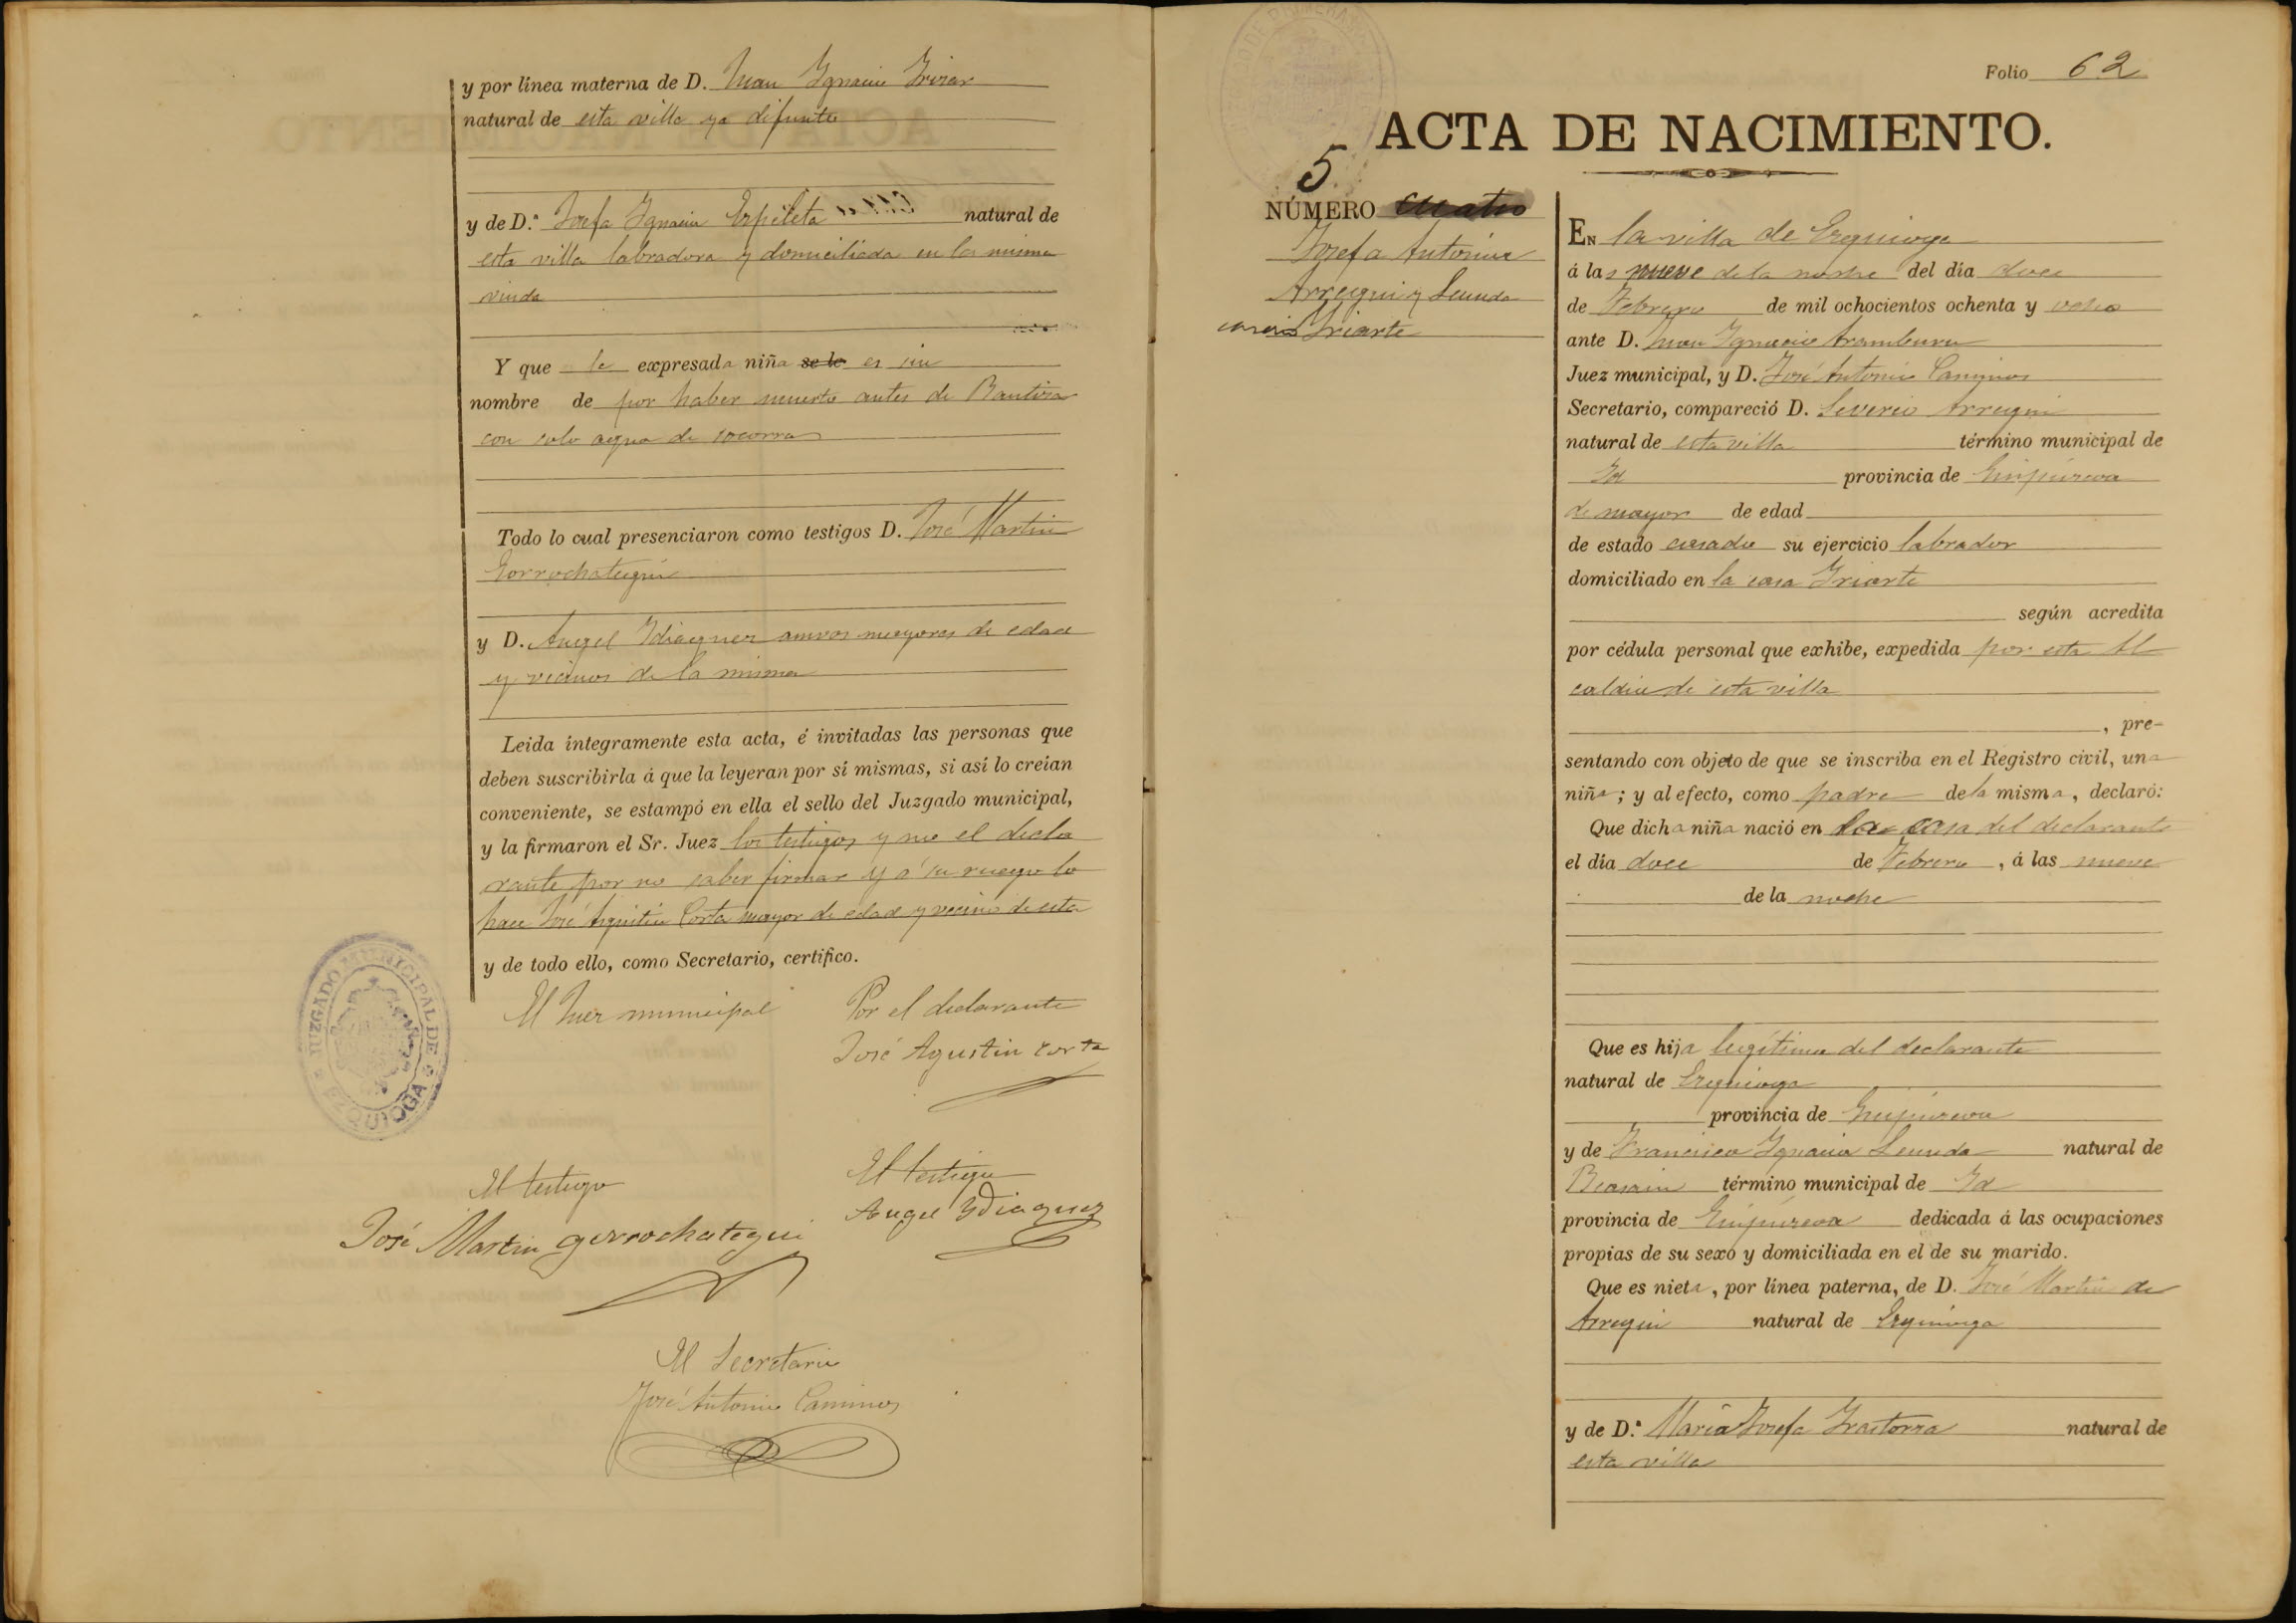 y por línea materna de D. Juan Ignacio Irizar
natural de esta villa ya difunto
y de D.ª Josefa Ignacia Ezpeleta natural de
esta villa labradora y domiciliada en la misma
viuda
Y que la expresada niña se le es sin
nombre de por haber muerto antes de Bautizar
con solo agua de socorro
Todo lo cual presenciaron como testigos D. José Martin
Gorrochategui
y D. Angel Ydiaquez amvos mayores de edad
y vecinos de la misma
Leida íntegramente esta acta, é invitadas las personas que
deben suscribirla á que la leyeran por sí mismas, si así lo creían
conveniente, se estampó en ella el sello del Juzgado municipal,
y la firmaron el Sr. Juez los testigos y no el decla
rante por no saber firmar y á su ruego lo
hace José Agustin Corta mayor de edad y vecino de esta
y de todo ello, como Secretario, certifico.
El Juez municipal Por el declarante
José Agustin Corta
JUZGADO MUNICIPAL DE
EZQUIOGA
El testigo El testigo
José Martin Gorrochategui Angel Ydiaquez
El Secretario
José Antonio Caminos
Folio 62
ACTA DE NACIMIENTO.
5
NÚMERO cuatro
Josefa Antonia
Arregui y Lunuda
caserio Iriarte
EN la villa de Ezquioga
á las nueve de la noche del día doce
de Febrero de mil ochocientos ochenta y ocho
ante D. Juan Ignacio Aramburu
Juez municipal, y D. José Antonio Caminos
Secretario, compareció D. Severio Arregui
natural de esta villa término municipal de
Id provincia de Guipúzcoa
de mayor de edad
de estado casado su ejercicio labrador
domiciliado en la casa Iriarte
según acredita
por cédula personal que exhibe, expedida por esta Al
caldia de esta villa
, pre-
sentando con objeto de que se inscriba en el Registro civil, una
niña; y al efecto, como padre de la misma, declaró:
Que dicha niña nació en la casa del declarante
el día doce de Febrero, á las nueve
de la noche
Que es hija legítima del declarante
natural de Ezquioga
provincia de Guipúzcoa
y de Francisca Ignacia Lunuda natural de
Beasain término municipal de Id
provincia de Guipúzcoa dedicada á las ocupaciones
propias de su sexo y domiciliada en el de su marido.
Que es nieta, por línea paterna, de D. José Martin de
Arregui natural de Ezquioga
y de D.ª María Josefa Irastorza natural de
esta villa